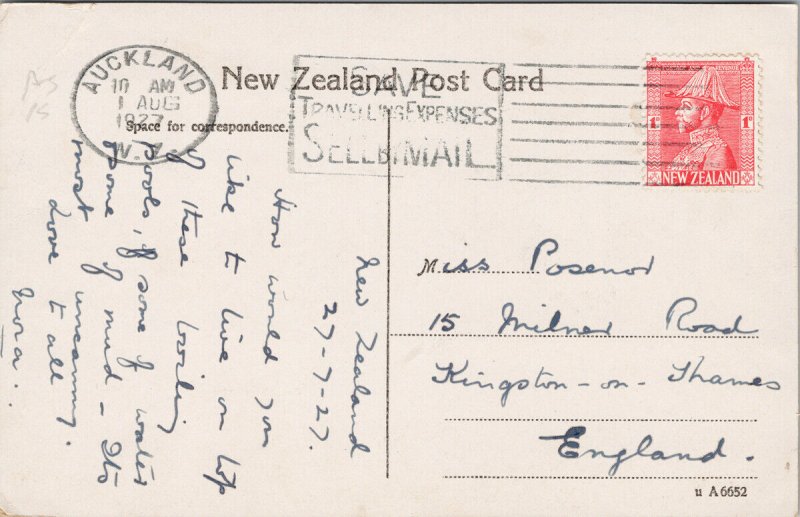 New Zealand Post Card
AUCKLAND
10 AM
1 AUG
1927
N.Z.
SAVE
TRAVELLING EXPENSES
SELL BY MAIL
1D 1D
NEW ZEALAND
Space for correspondence.
New Zealand
27-7-27.
How would you
like to live on top
of these boiling
pools, of some of water
some of mud - Its
most uncanny.
Love to all
Nora.
Miss Posenor
15 Milner Road
Kingston-on-Thames
England.
u A6652